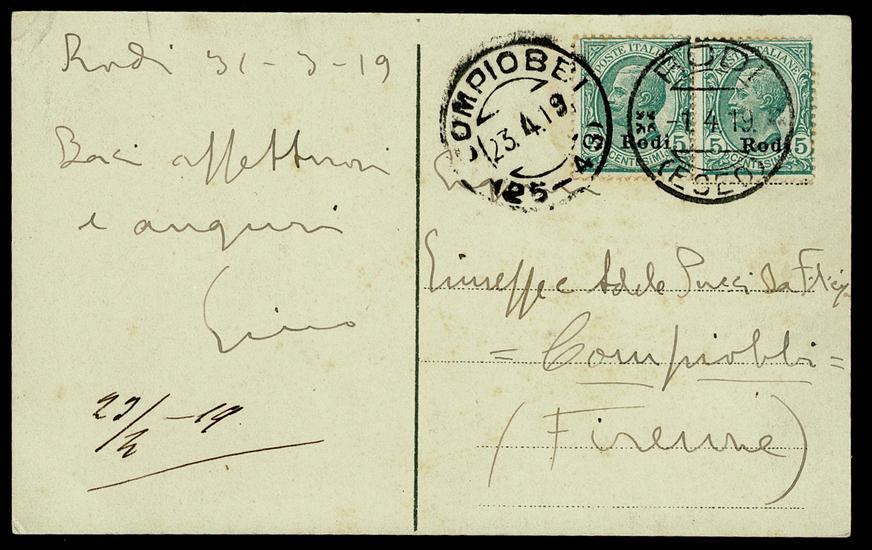 Rodi 31-3-19
Baci affettuosi
e auguri
Gino
23/4-19
COMPIOBBI
23.4.19
(25-43)
POSTE ITALIANE
Rodi
5 CENTESIMI 5
POSTE ITALIANE
Rodi
5 CENTESIMI 5
RODI
-1.4.19.
(EGEO)
Giuseppe e Adele Pucci da Filicaja
= Compiobbi =
(Firenze)